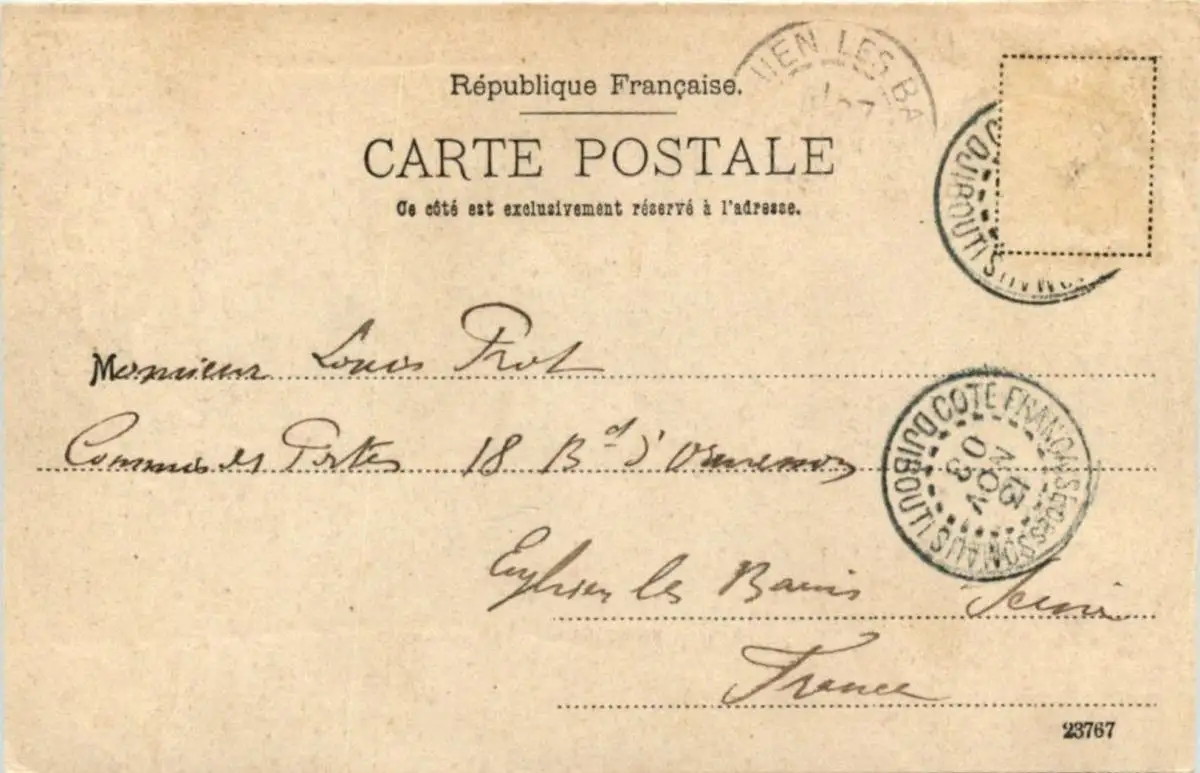 République Française.
CARTE POSTALE
Ce côté est exclusivement réservé à l'adresse.
HIEN LES BA
DJIBOUTI
Monsieur Louis Prot
Commis des Postes 18 Bd d'Ormesson
DJIBOUTI COTE FRANÇAISE DES SOMALIS
NOV
03
Enghien les Bains Seine
France
23767